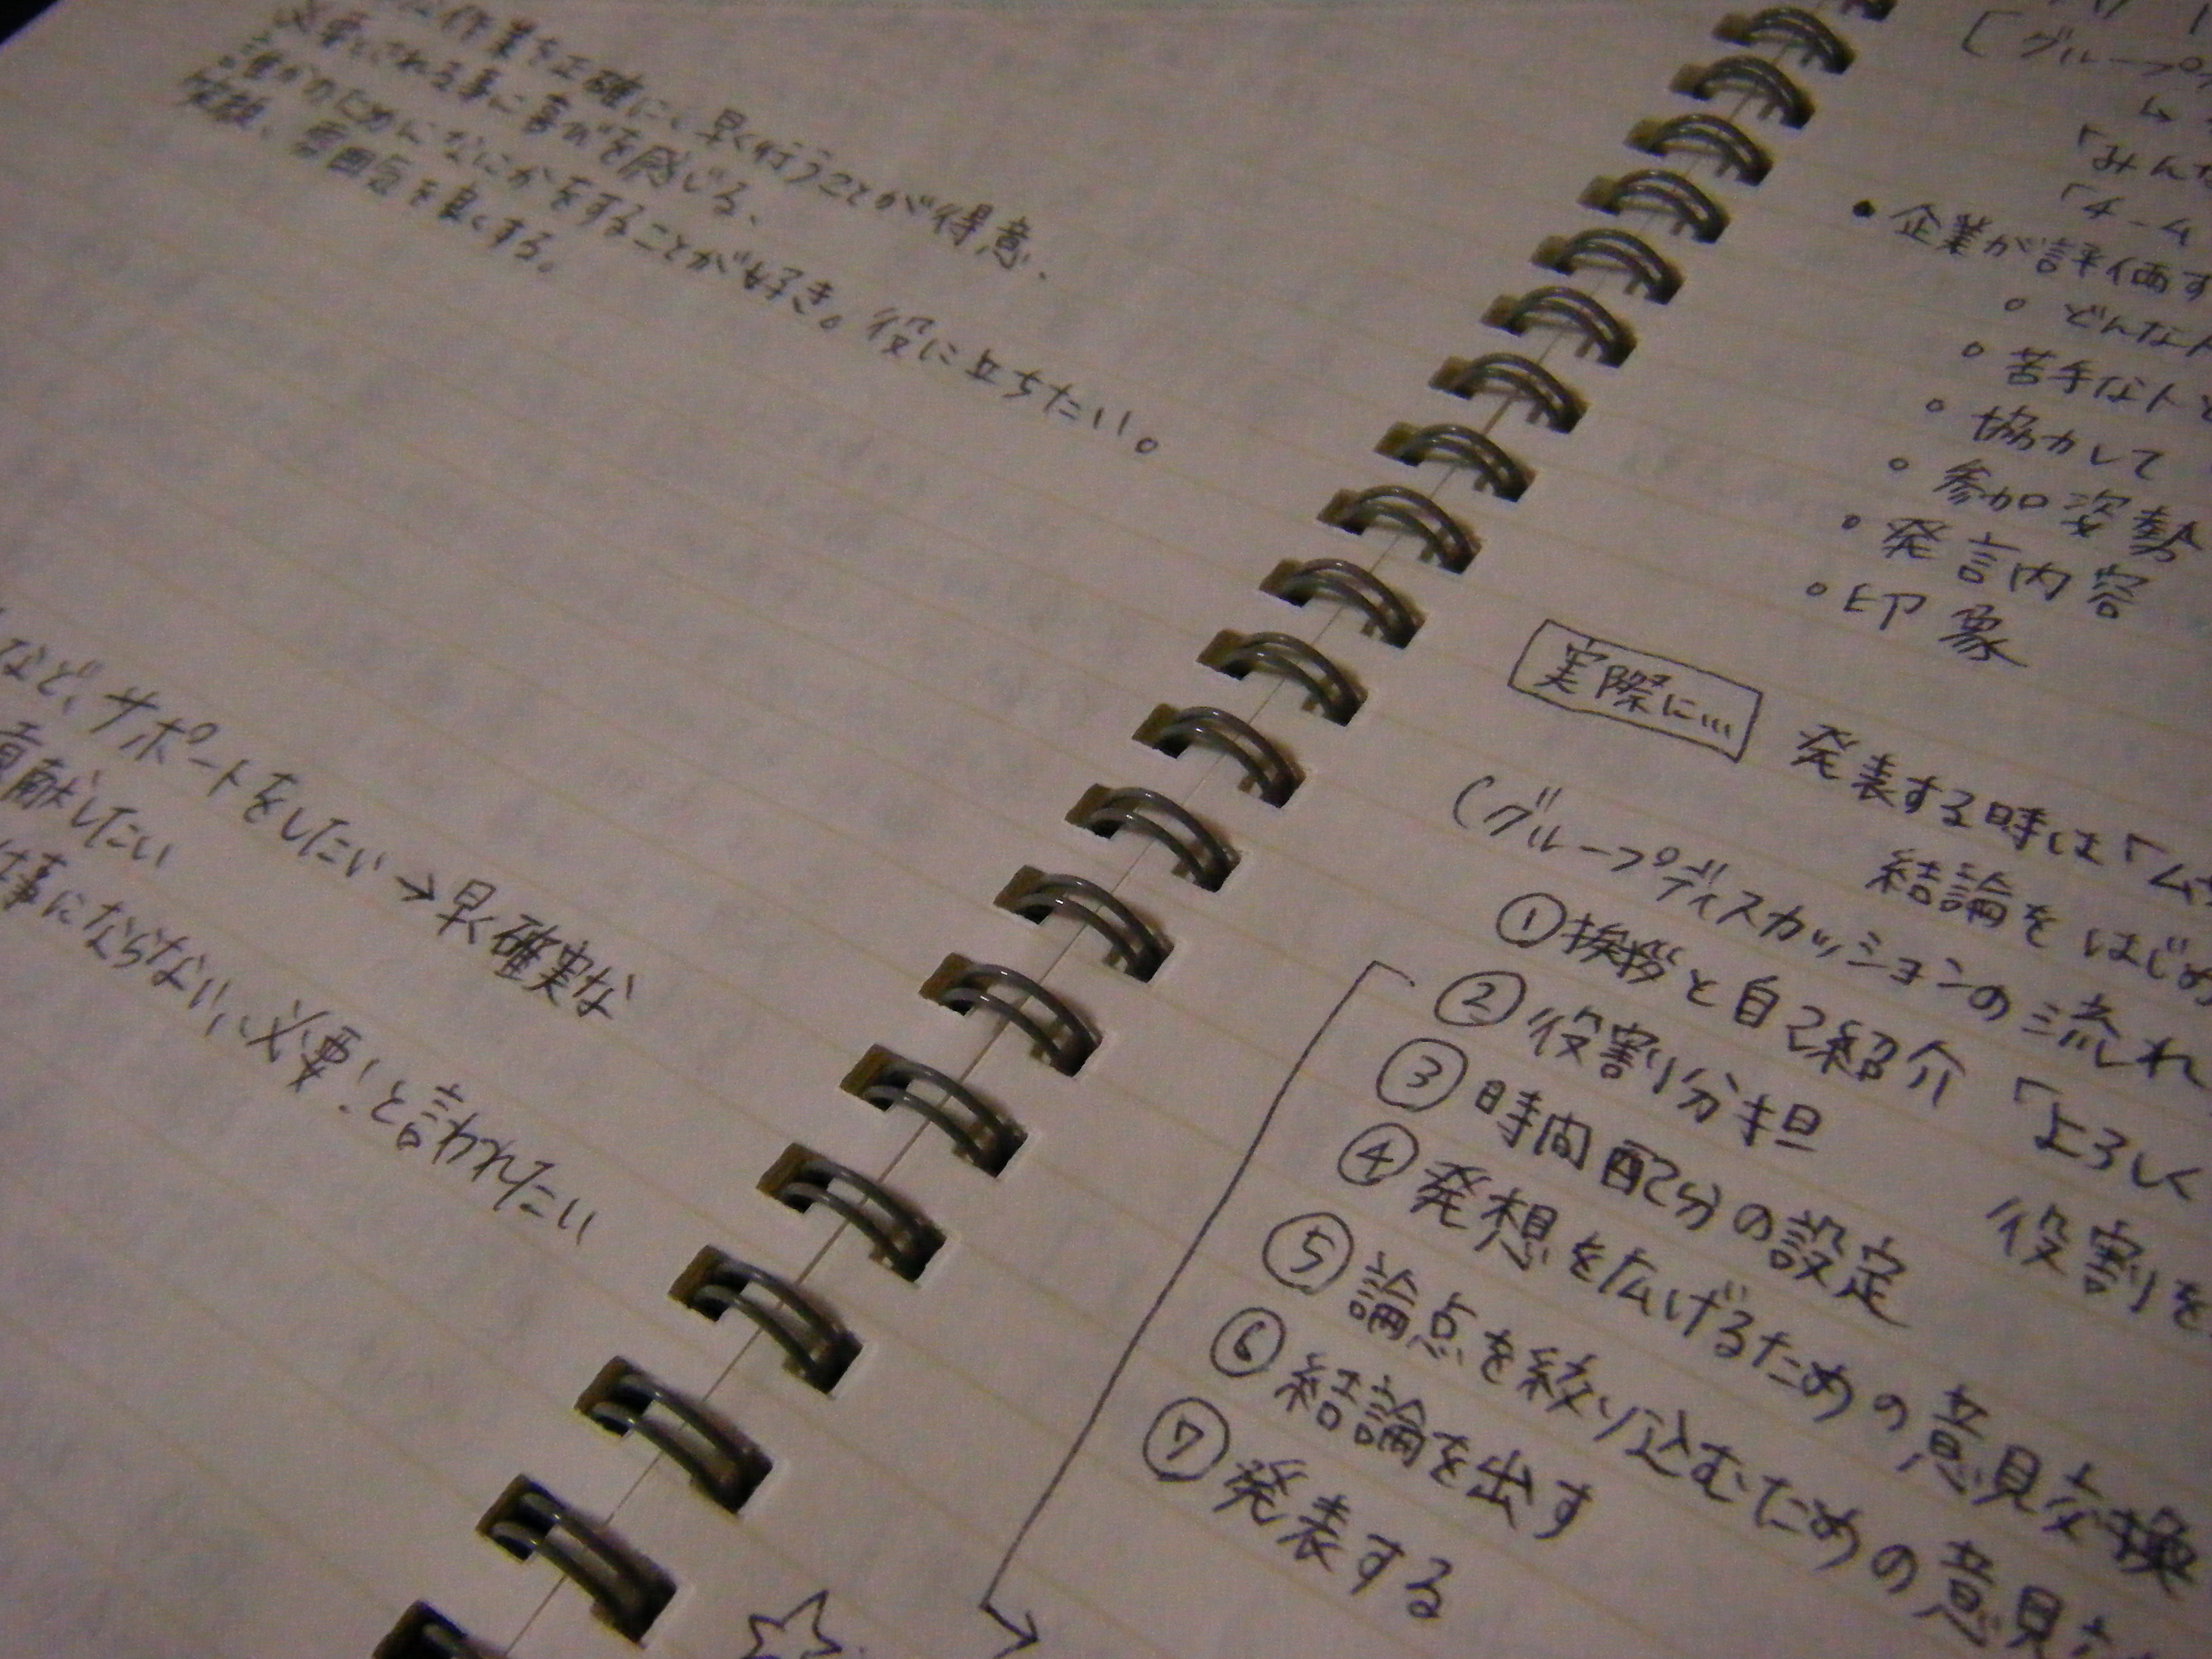 作業を正確に、早く行うことが得意.
必要とされる事に喜びを感じる、
誰かのためになにかをすることが好き。役に立ちたい。
笑顔、雰囲気を良くする。
など、サポートをしたい→早く確実な
貢献したい
仕事にならない、必要!と言われたい
[グループ
「みんな
「チーム
•企業が評価す
○どんな人
○苦手な人と
○協力して
○参加姿勢
○発言内容
○印象
実際に…
発表する時は
結論をはじめ
(グループディスカッションの流れ
①挨拶と自己紹介「よろしく
②役割分担
役割を
③時間配分の設定
④発想を広げるための意見交換
⑤論点を絞り込むための意見
⑥結論を出す
⑦発表する